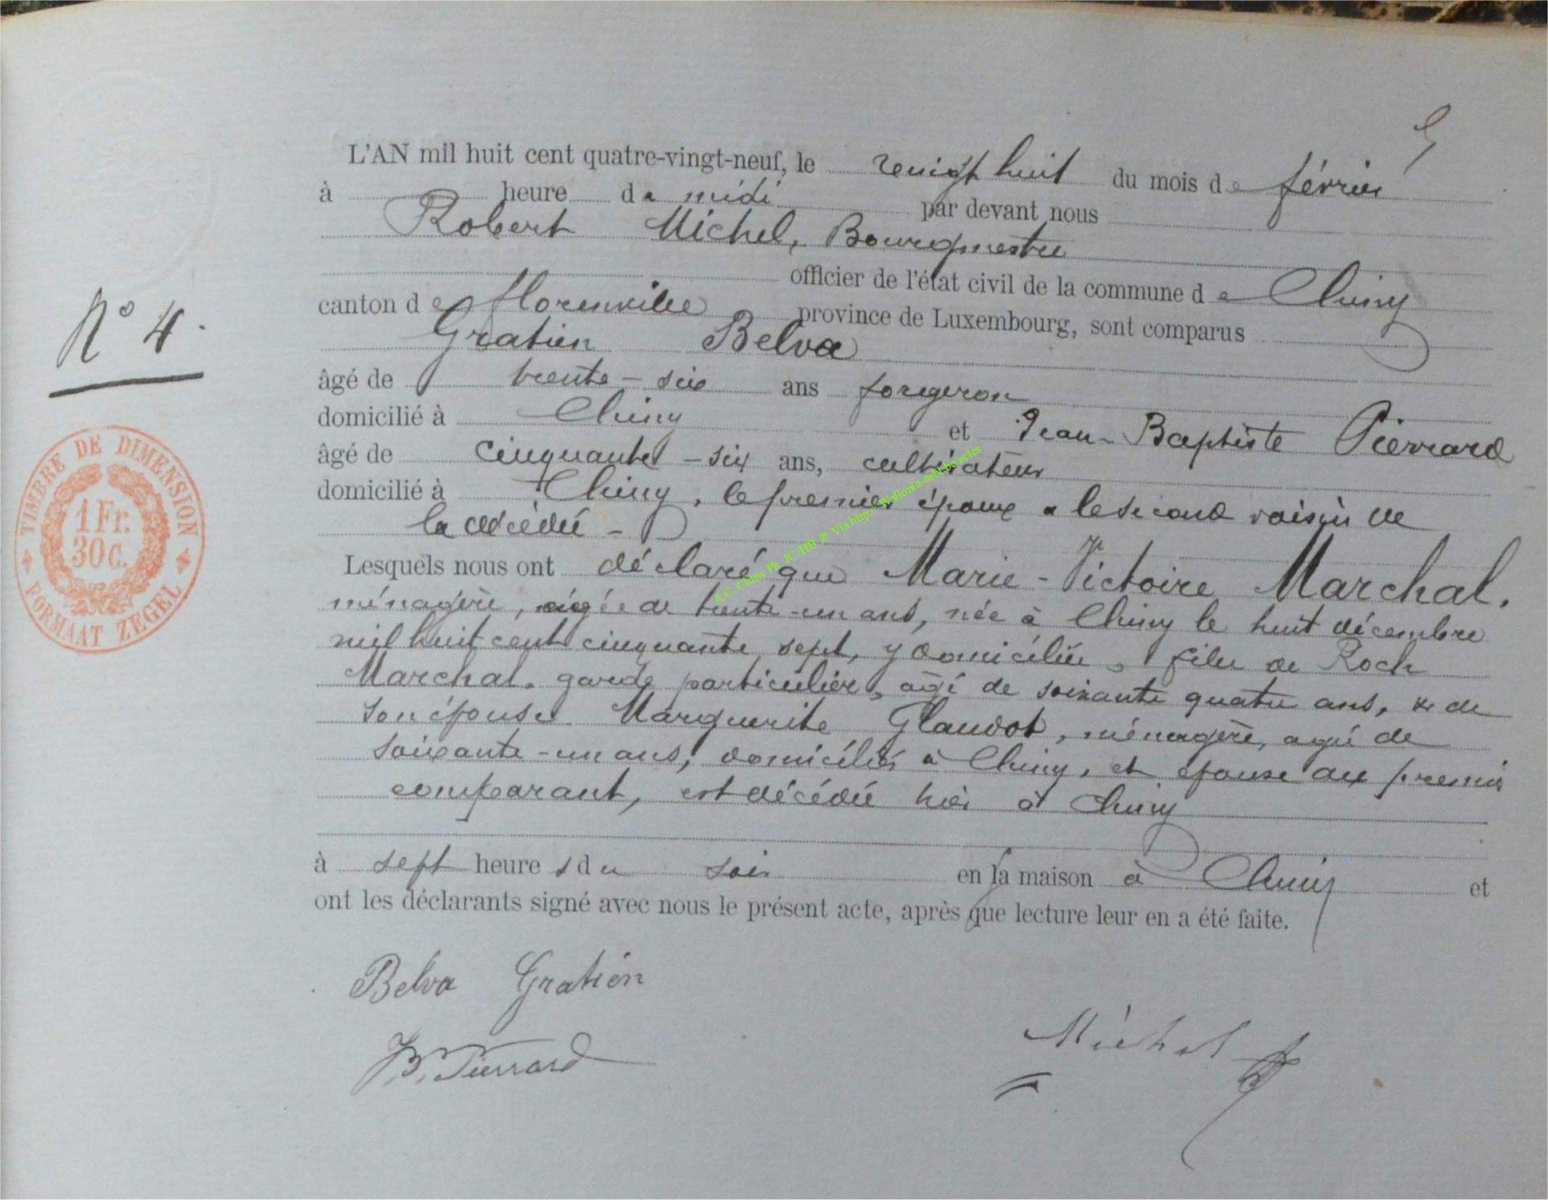 5
L'AN mil huit cent quatre-vingt-neuf, le vingt huit du mois de février
à heure de midi par devant nous
Robert Michel, Bourgmestre
officier de l'état civil de la commune de Chiny
canton de florenville province de Luxembourg, sont comparus
Gratien Belva
âgé de trente-six ans forgeron
domicilié à Chiny et Jean-Baptiste Pierrard
âgé de cinquante-six ans, cultivateur
domicilié à Chiny, le premier époux & le second voisin de
la décédée -
Lesquels nous ont déclaré que Marie-Victoire Marchal,
ménagère, âgée de trente-un ans, née à Chiny le huit décembre
mil huit cent cinquante sept, y domiciliée, fille de Roch
Marchal, garde particulier, âgé de soixante quatre ans, & de
son épouse Marguerite Glaudot, ménagère, agée de
soixante-un ans, domiciliés à Chiny, et épouse au premier
comparant, est décédée hier à Chiny
à sept heures du soir en la maison à Chiny et
ont les déclarants signé avec nous le présent acte, après que lecture leur en a été faite.
N° 4.
TIMBRE DE DIMENSION
1 Fr.
30 C.
FORMAAT ZEGEL
Belva Gratien
JB. Pierrard
Michel